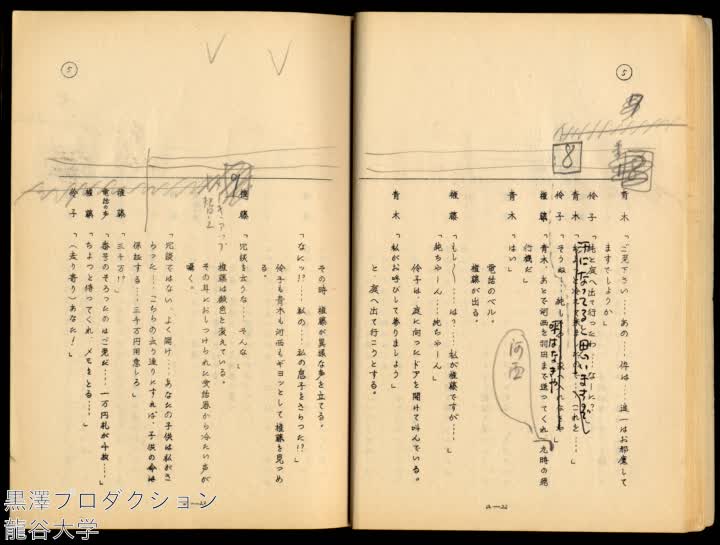 5
8
青木「ご免下さい……あの……伜は……進一はお邪魔して
ますでしょうか」
伶子「純と庭へ出て行ったわ……なーに?」
汗になってると思いますでし
伶子「そうね……純
呼ばなきゃ
権藤「青木、あとで河西を羽田まで送ってくれ、九時の飛
行機だ」
河西
青木「はい」
電話のベル。
権藤が出る。
権藤「もし〱……は?……私が権藤ですが……」
「純ちゃーん……純ちゃーん」
伶子は、庭に向ったドアを開けて叫んでいる。
青木「私がお呼びして参りましょう」
と、庭へ出て行こうとする。
a—22
5
その時、権藤が異様な声を立てる。
「なにッ!?……私の……私の息子をさらった!?」
伶子も青木も河西もギョッとして権藤を見つめ
る。
9
権藤「冗談を云うな……そんな」
権藤は顔色を変えている。
その耳におしつけられた受話器から冷たい声が
囁く。
「冗談ではない、よく聞け……あなたの子供は私がさ
らった……こちらの云う通りにすれば、子供の命は
保証する……三千万円用意しろ」
権藤「三千万!?」
電話の声「番号のそろったのはご免だ……一万円札が千枚…」
権藤「ちょっと待ってくれ、メモをとる……」
伶子「(走り寄り)あなた!」
黒澤プロダクション
龍谷大学